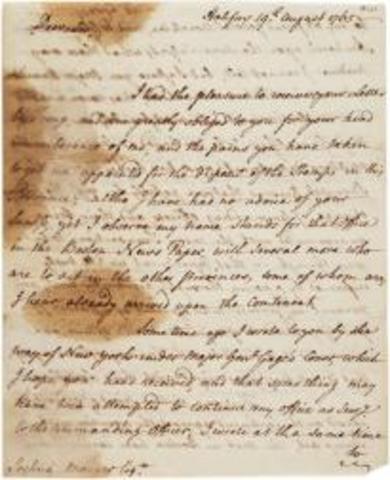 Halifax 19th August 1765
Dear
I had the pleasure to receive your Letter
and am greatly obliged to you for your kind
of me and the pains you have taken
to get me appointed for the disposal of the Stamps in this
Province, altho' I have had no advice of your
yet I observe my name stands for that office
in the Boston News Paper with several more who
are to act in the other provinces, some of whom are
I hear already arrived upon the Continent.
Some time ago I wrote to you by the
way of New York under Major Genl. Gage's Cover, which
I hope you have received and that something may
have been attempted to continue my office as Secy.
to the commanding Officer, I wrote at the same time
to
Joshua Mauger Esqr.